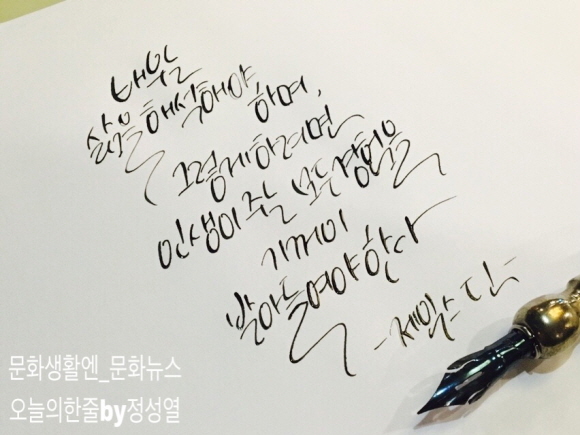 배우는
삶을 해석해야 하며,
그렇게 하려면
인생이 주는 모든 경험을
기꺼이
받아들여야 한다
- 제임스 딘 -
문화생활엔_문화뉴스
오늘의한줄by정성열